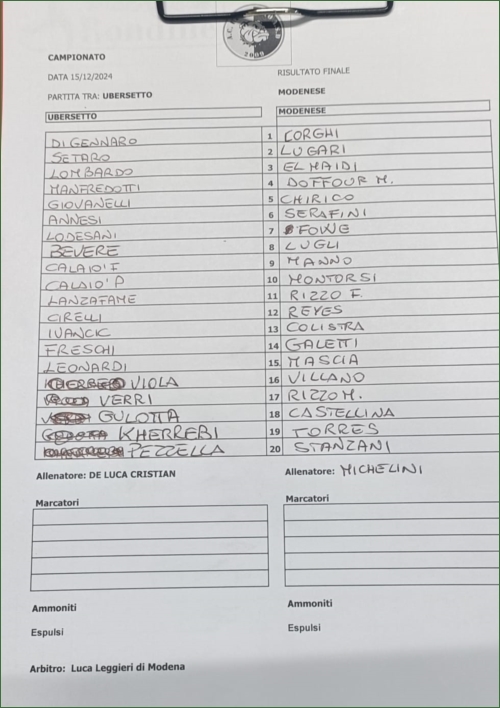 2000
CAMPIONATO
DATA 15/12/2024
RISULTATO FINALE
PARTITA TRA: UBERSETTO
MODENESE
UBERSETTO
MODENESE
DI GENNARO 1 CORGHI
SETARO 2 LUGARI
LOMBARDO 3 EL MAIDI
MANFREDOTTI 4 DOFFOUR M.
GIOVANELLI 5 CHIRICO
ANNESI 6 SERAFINI
LODESANI 7
BEVERE 8 LUGLI
CALAIO' I 9 MANNO
CALAIO' P 10 MONTORSI
LANZAFAME 11 RIZZO F.
CIRELLI 12 REYES
IVANCIC 13 COLISTRA
FRESCHI 14 GALETTI
LEONARDI 15 MASCIA
VIOLA 16 VILLANO
VERRI 17 RIZZO M.
GULOTTA 18 CASTELLINA
KHERREBI 19 TORRES
PEZZELLA 20 STANZANI
Allenatore: DE LUCA CRISTIAN
Allenatore: MICHELINI
Marcatori
Marcatori
Ammoniti
Ammoniti
Espulsi
Espulsi
Arbitro: Luca Leggieri di Modena